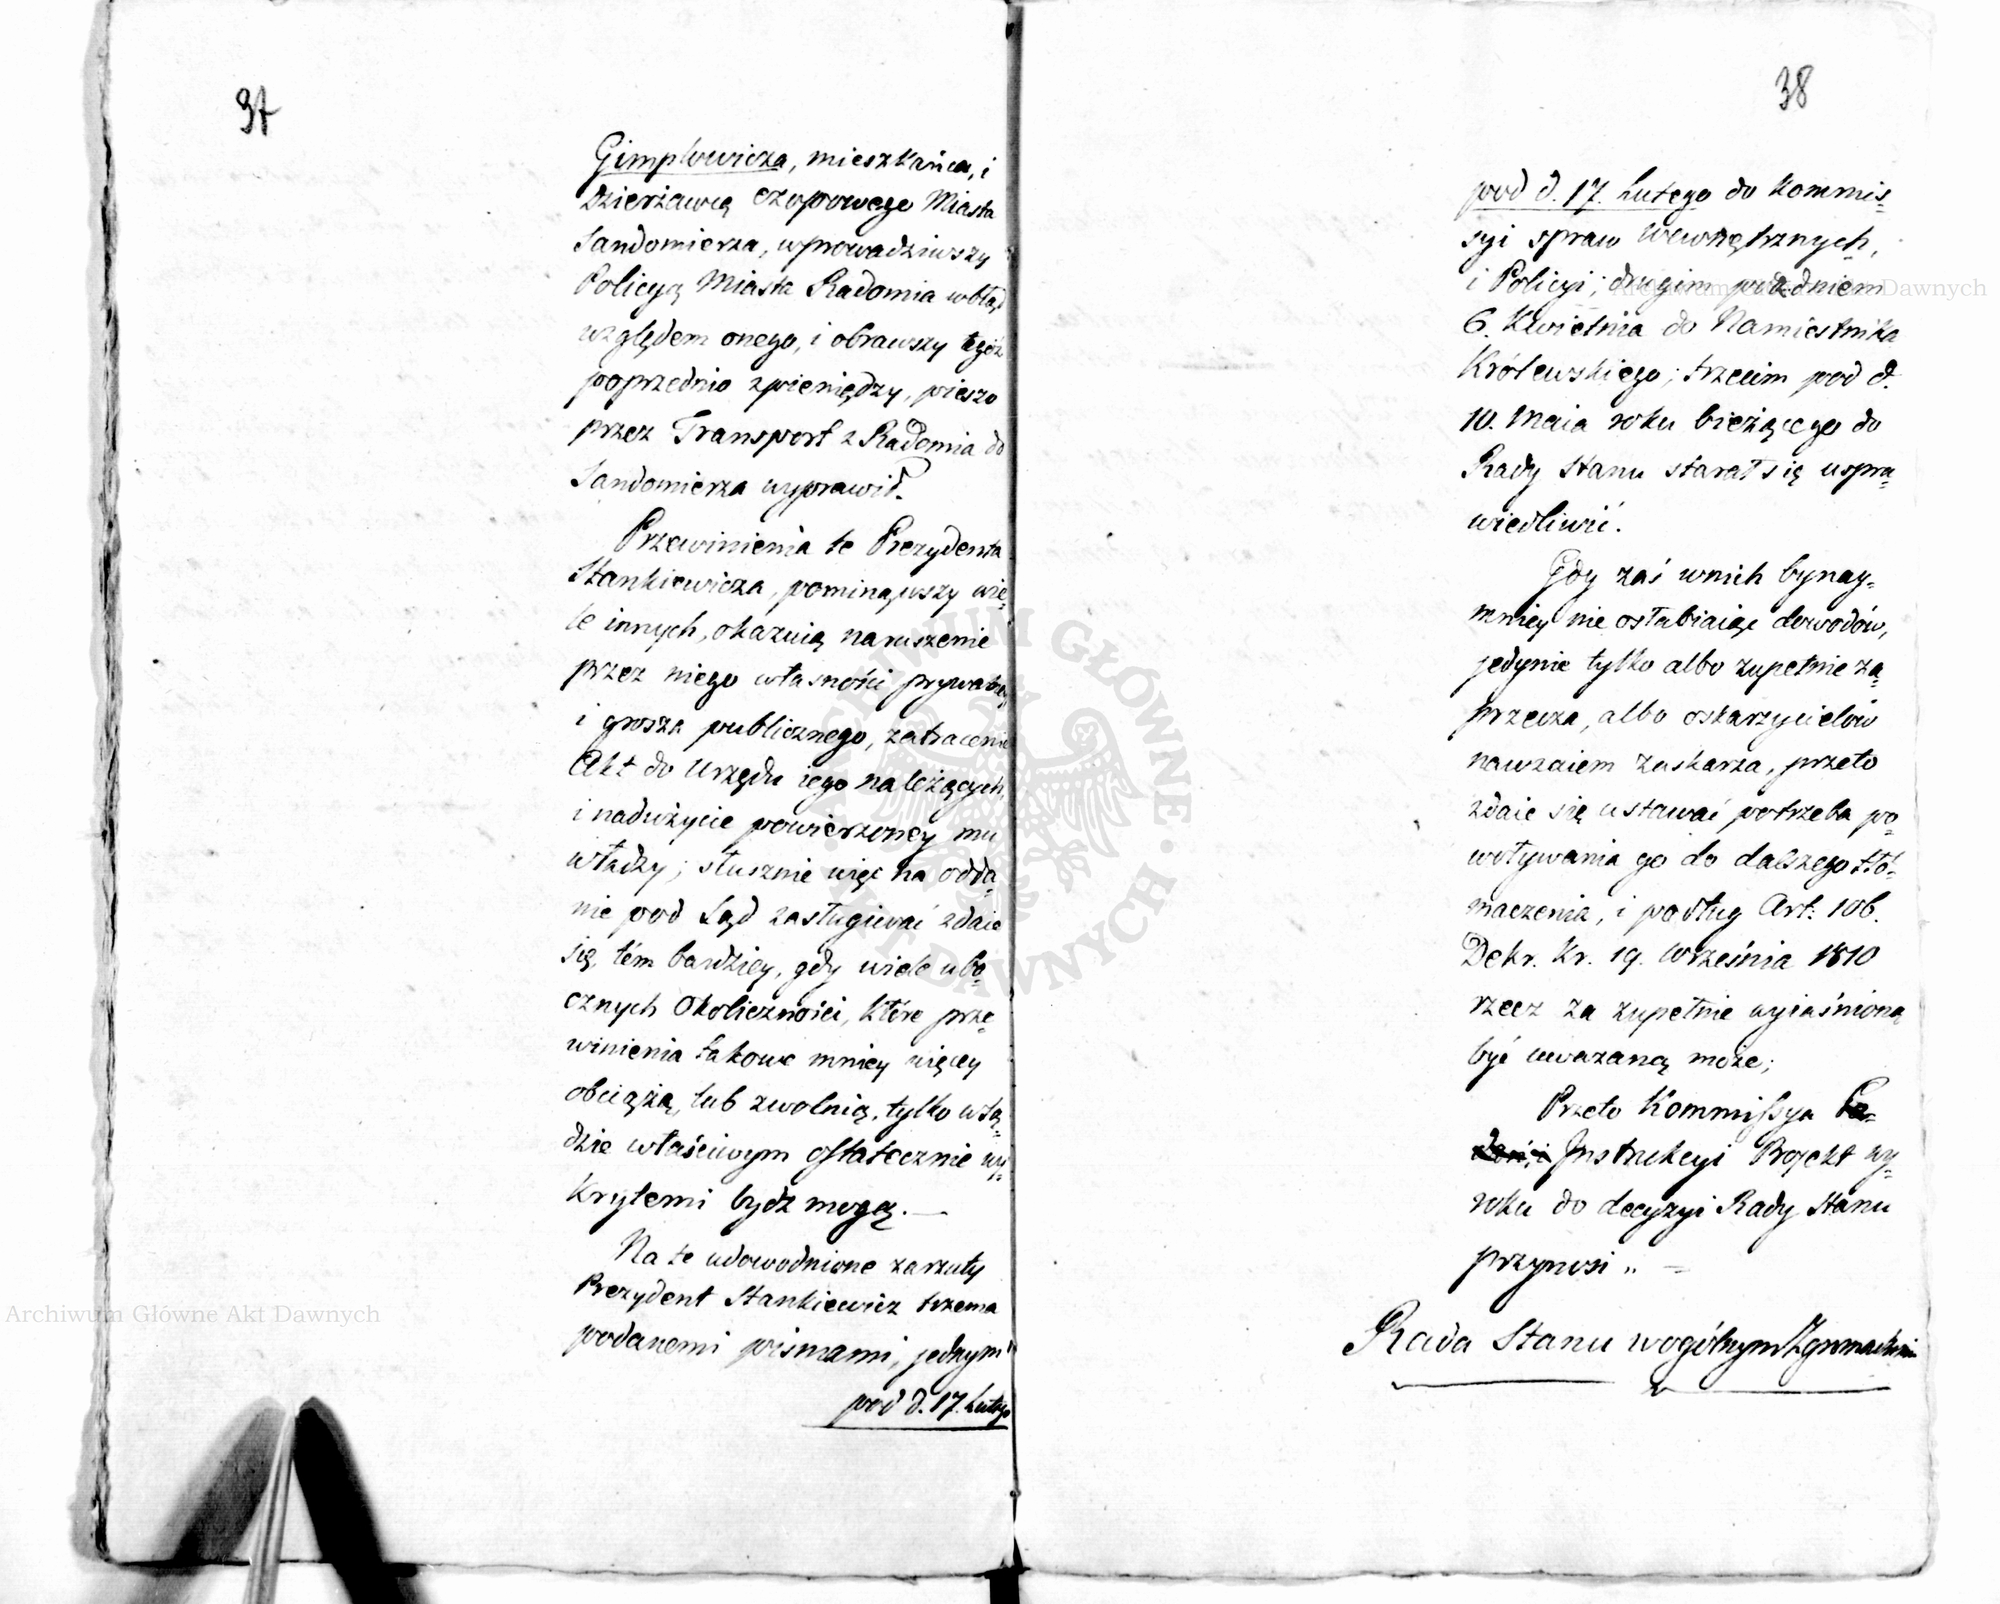 37
Gimplowicza, mieszkańca, i
Dzierżawcą czopowego Miasta
Sandomierza, wprowadziwszy
Policyą Miasta Radomia wbłąd
względem onego, i obrawszy tegoż
poprzednio zpieniędzy, pieszo
przez Transport z Radomia do
Sandomierza wyprawił.
Przewinienia te Prezydenta
Stankiewicza, pominąwszy wie=
le innych, okazuią naruszenie
przez niego własności prywatney
i grosza publicznego, zatracenie
Akt do Urzędu iego należących,
i nadużycie powierzoney mu
władzy; słusznie więc na odda=
nie pod Sąd zasługiwać zdaie
się, tém bardziey, gdy wiele ubo=
cznych okoliczności, które prze=
winienia takowe mniey więcey
obciążą, lub zwolnią, tylko wSą=
dzie właściwym ostatecznie wy=
krytemi bydź mogą. —
Na te udowodnione zarzuty
Prezydent Stankiewicz trzema
podanemi pismami, jednym
pod d. 17. Lutego
38
pod d. 17. Lutego do Kommis=
syi spraw Wewnętrznych,
i Policyi; drugim pod dniem
6. Kwietnia do Namiestnika
Królewskiego; trzecim pod d.
10. Maia roku bieżącego do
Rady Stanu starał się uspra=
wiedliwić.
Gdy zaś wnich bynay=
mniey nie osłabiaiąc dowodów,
jedynie tylko albo zupełnie za=
przecza, albo oskarzycielów
nawzaiem zaskarza, przeto
zdaie się ustawać potrzeba po=
woływania go do dalszego tłó=
maczenia, i podług Art: 106.
Dekr. Kr. 19. Września 1810
rzecz za zupełnie wyiaśnioną
być uważaną może;
Przeto Kommissya
Instrukcyi Projekt wy=
roku do decyzyi Rady Stanu
przynosi „ =
Rada Stanu wogólnym Zgromadzeniu
ARCHIWUM GŁÓWNE AKT DAWNYCH
Archiwum Główne Akt Dawnych
Archiwum Główne Akt Dawnych